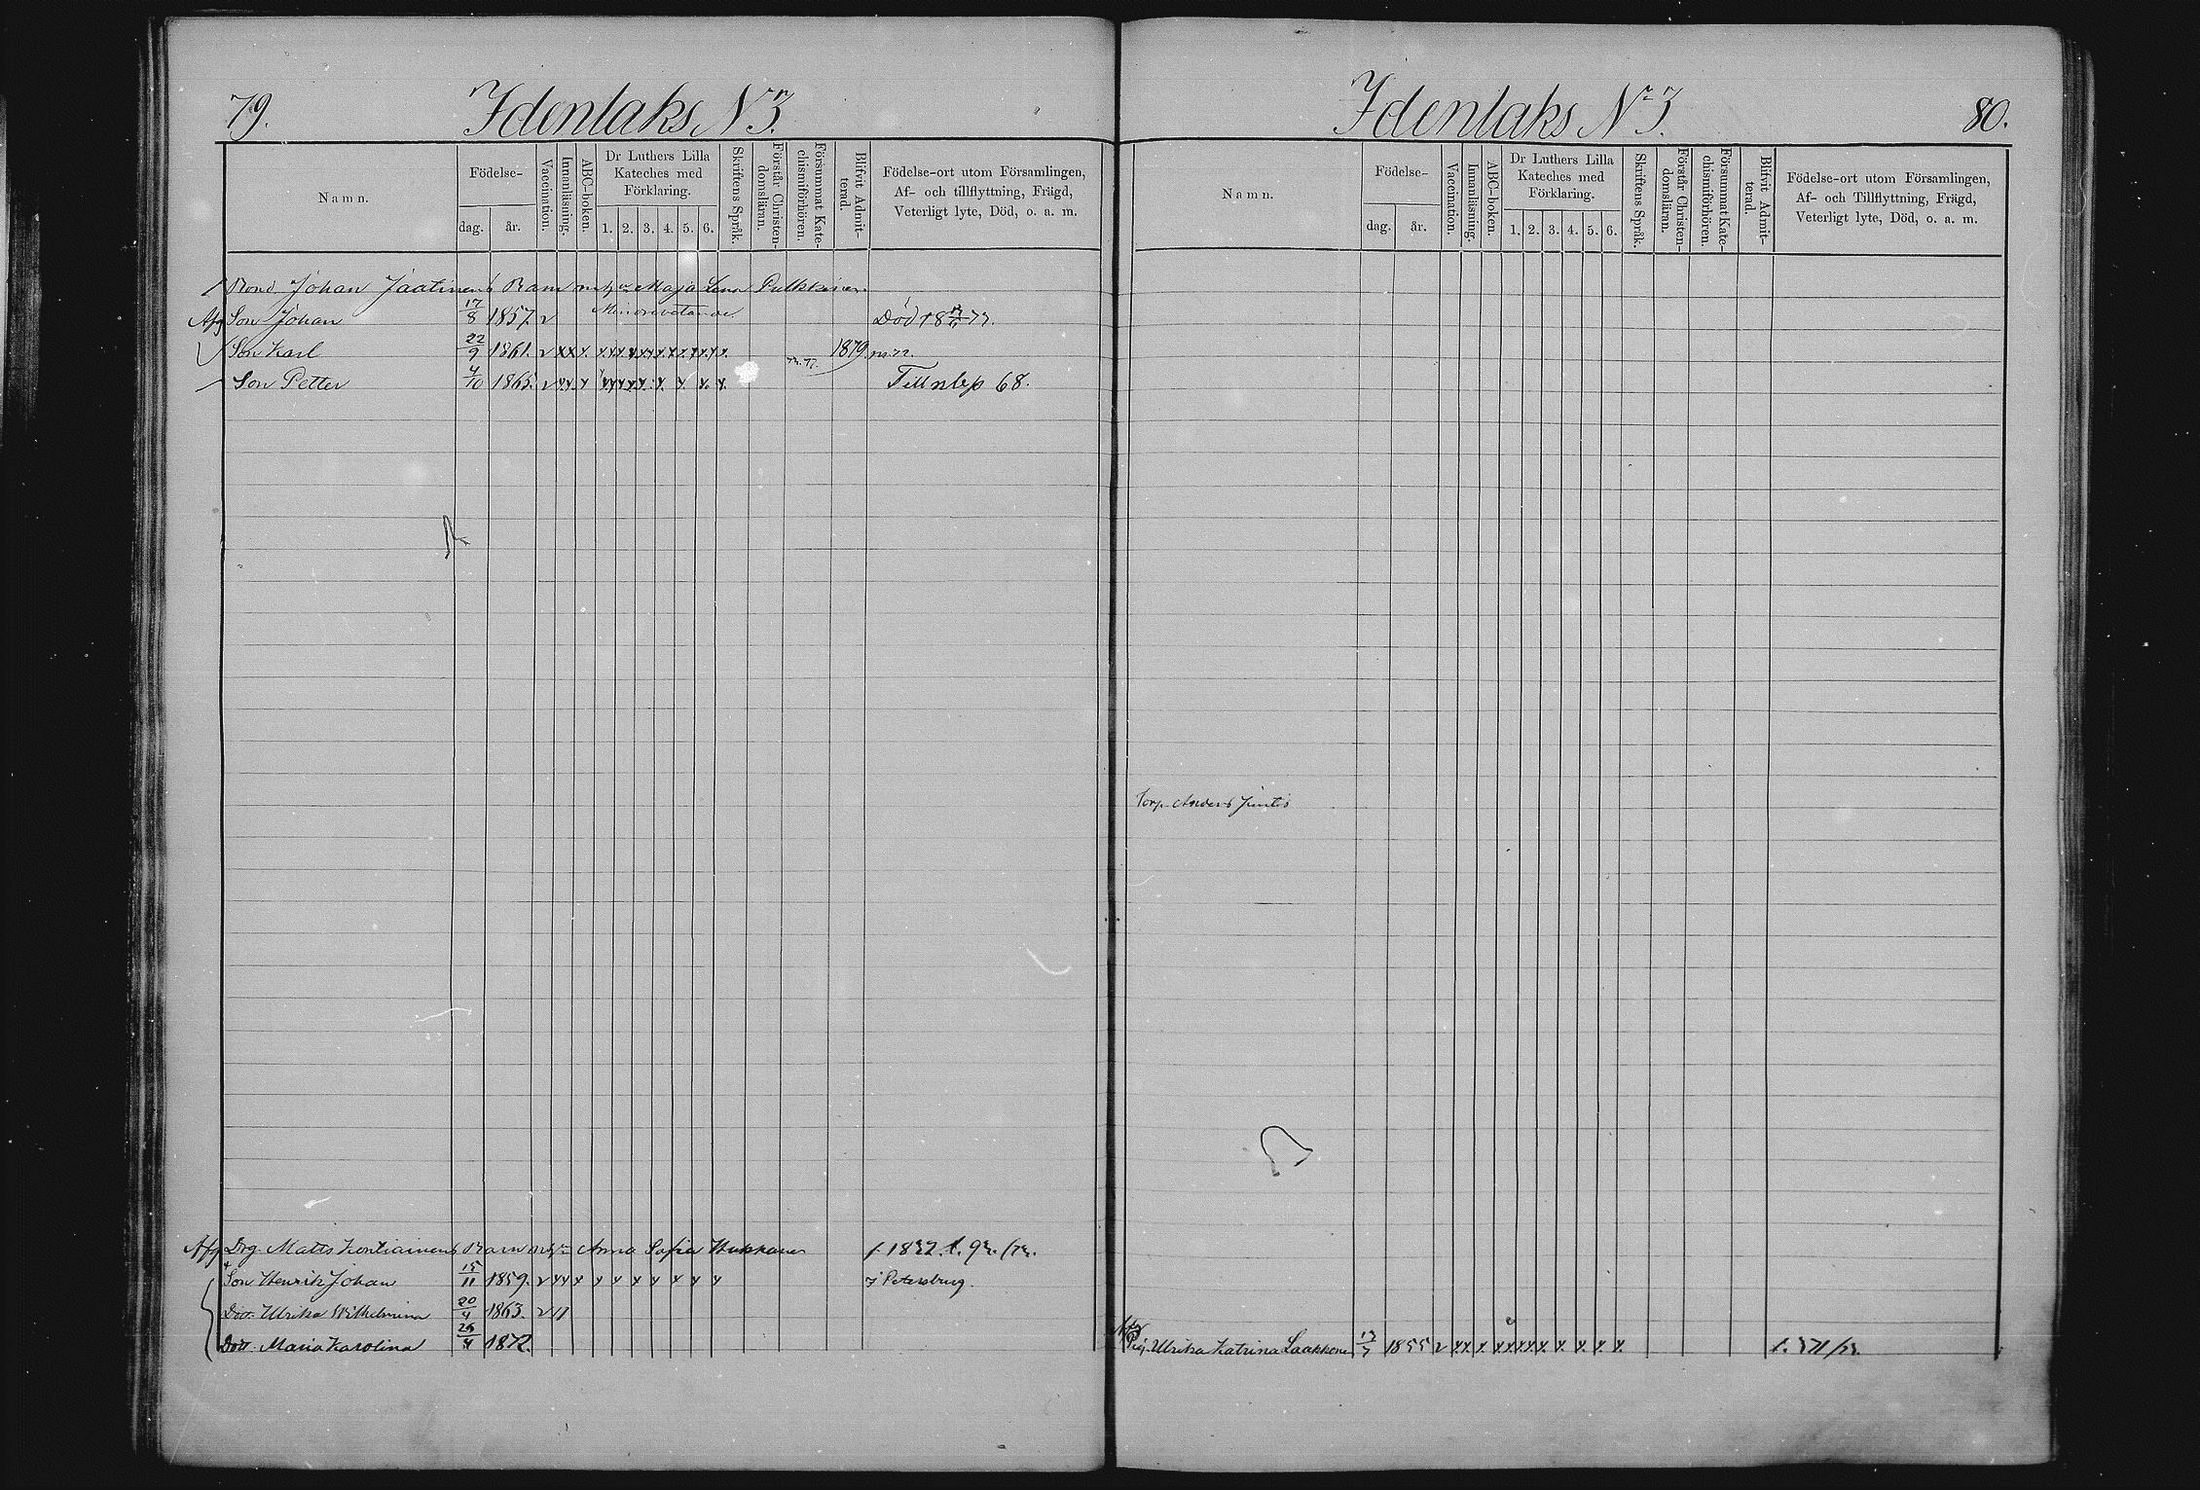 79.
Idenlaks Nr 3.
Namn.
Födelse-
dag.
år.
Vaccination.
Innanläsning.
ABC-boken.
Dr Luthers Lilla Kateches med Förklaring.
1. 2. 3. 4. 5. 6.
Skriftens Språk.
Förstår Christendomsläran.
Försummat Katechismiförhören.
Blifvit Admitterad.
Födelse-ort utom Församlingen,
Af- och tillflyttning, Frägd,
Veterligt lyte, Död, o. a. m.
Bond. Johan Jaatinens Barn Maja Lena Pulkkinen
Afg Son Johan 17/8 1857. v Död 18
Son Karl 22/9 1861. v x x x x x x x x x x x x x 1879
Son Petter 4/10 1865. v x x x x x x x x x x x x 68.
Afg Drg. Matts Kontiainens Barn Anna Sofia
Son Henrik Johan 15/11 1859. v x x x x x x x x x x i Petersburg.
Dott. Ulrika Wilhelmina 20/4 1863. v
Dott. Maria Karolina 1872.
Idenlaks Nr 3.
80.
Namn.
Födelse-
dag.
år.
Vaccination.
Innanläsning.
ABC-boken.
Dr Luthers Lilla Kateches med Förklaring.
1. 2. 3. 4. 5. 6.
Skriftens Språk.
Förstår Christendomsläran.
Försummat Katechismiförhören.
Blifvit Admitterad.
Födelse-ort utom Församlingen,
Af- och Tillflyttning, Frägd,
Veterligt lyte, Död, o. a. m.
Torp. Anders
Pig. Ulrika Katrina Laakkonen 1855 v x x x x x x x x x x x x